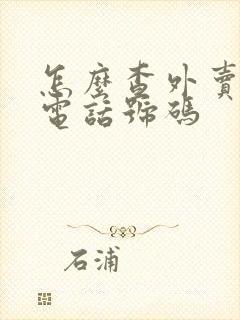 怎麼查外賣
電話號碼
石浦